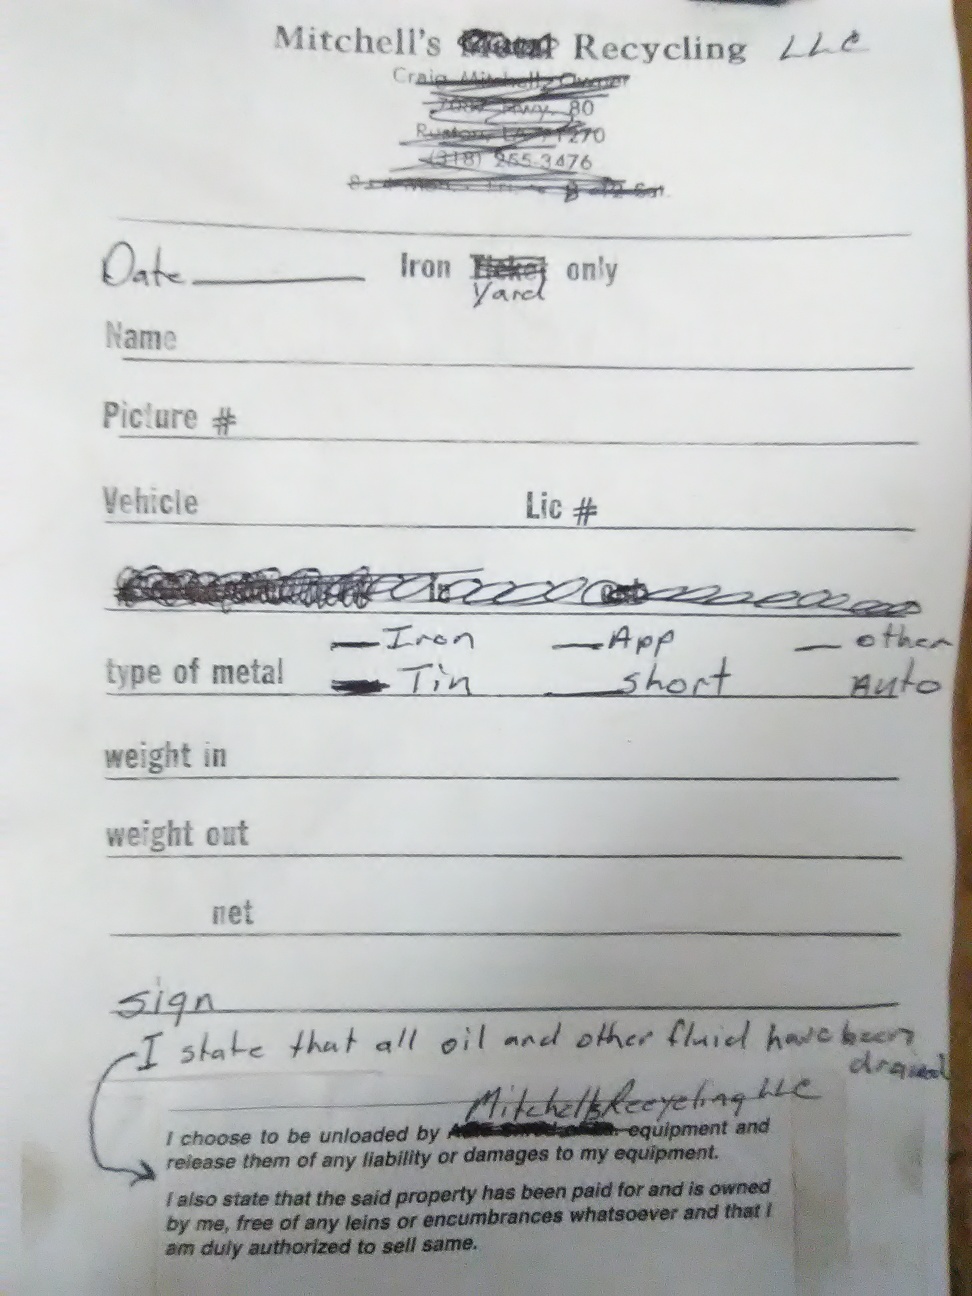 Mitchell's Recycling LLC
Craig Mitchell, Owner
Hwy. 80
Ruston, LA 71270
(318) 255-3476
Date Iron Ticket only
Yard
Name
Picture #
Vehicle Lic #
Iron App other
type of metal Tin short Auto
weight in
weight out
net
sign
I state that all oil and other fluid have been
draned
Mitchells Recycling LLC
I choose to be unloaded by equipment and
release them of any liability or damages to my equipment.
I also state that the said property has been paid for and is owned
by me, free of any leins or encumbrances whatsoever and that I
am duly authorized to sell same.